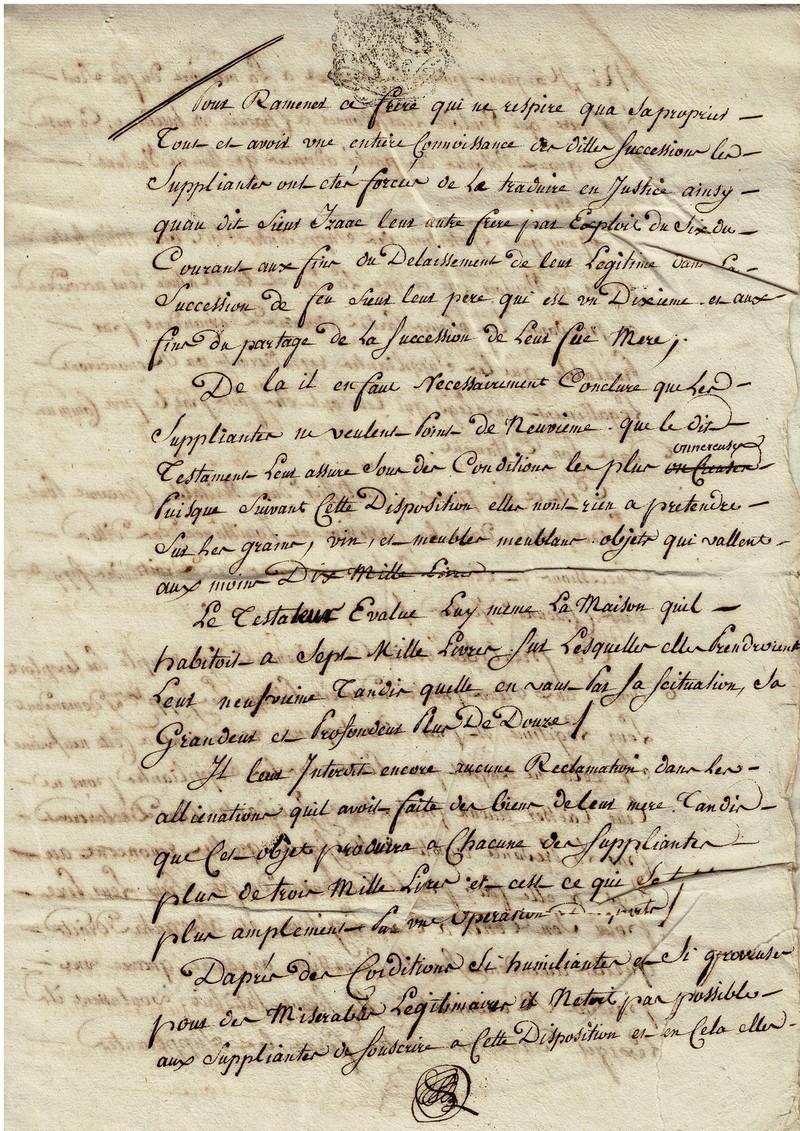 Pour Ramener ce frere qui ne respire qua sa propries
Tous et avoir une entiere Connoissance des dittes Successions les
Suppliantes ont eté forcées de Le traduire en Justice ainsy
quau dit Sieur Izaac leur autre frere par Exploit du Six du
Courant aux fins du Delaissement de leur Legitime dans La
Succession de feu Sieur leur pere qui est un Dixieme et aux
fins du partage de la Succession de Leur feüe Mere,
De la il en faut Necessairement Conclure que Les
Suppliantes ne veulent Point de Neuvième que le dit
Testament Leur assure Sous des Conditions les plus onnereuses
Puisque Suivant Cette Disposition elles nont rien a pretendre
Sur Les grains, vin, et meubles meublans objets qui vallent
aux moins Dix Mille Livres
Le Testateur Evalue Luy meme La Maison quil
habitoit a Sept Mille Livres Sur Lesquelles elles Prendroient
Leur neufvieme Tandis quelle en vaut Par Sa Scituation, Sa
Grandeur et Profondeur Plus De Douze /
Il leur Interdit encore aucune Reclamation dans les
allienations quil avoit faite des biens de leur mere Tandis
que Cet objet produira a Chacune des Suppliantes
plus de trois Mille Livres et cest ce qui
plus amplement Par une Operation
Daprés des Conditions Si humiliantes et Si
pour des Miserables Legitimaires il Netoit pas possible
aux Suppliantes de Souscrire a Cette Disposition et en Cela elles